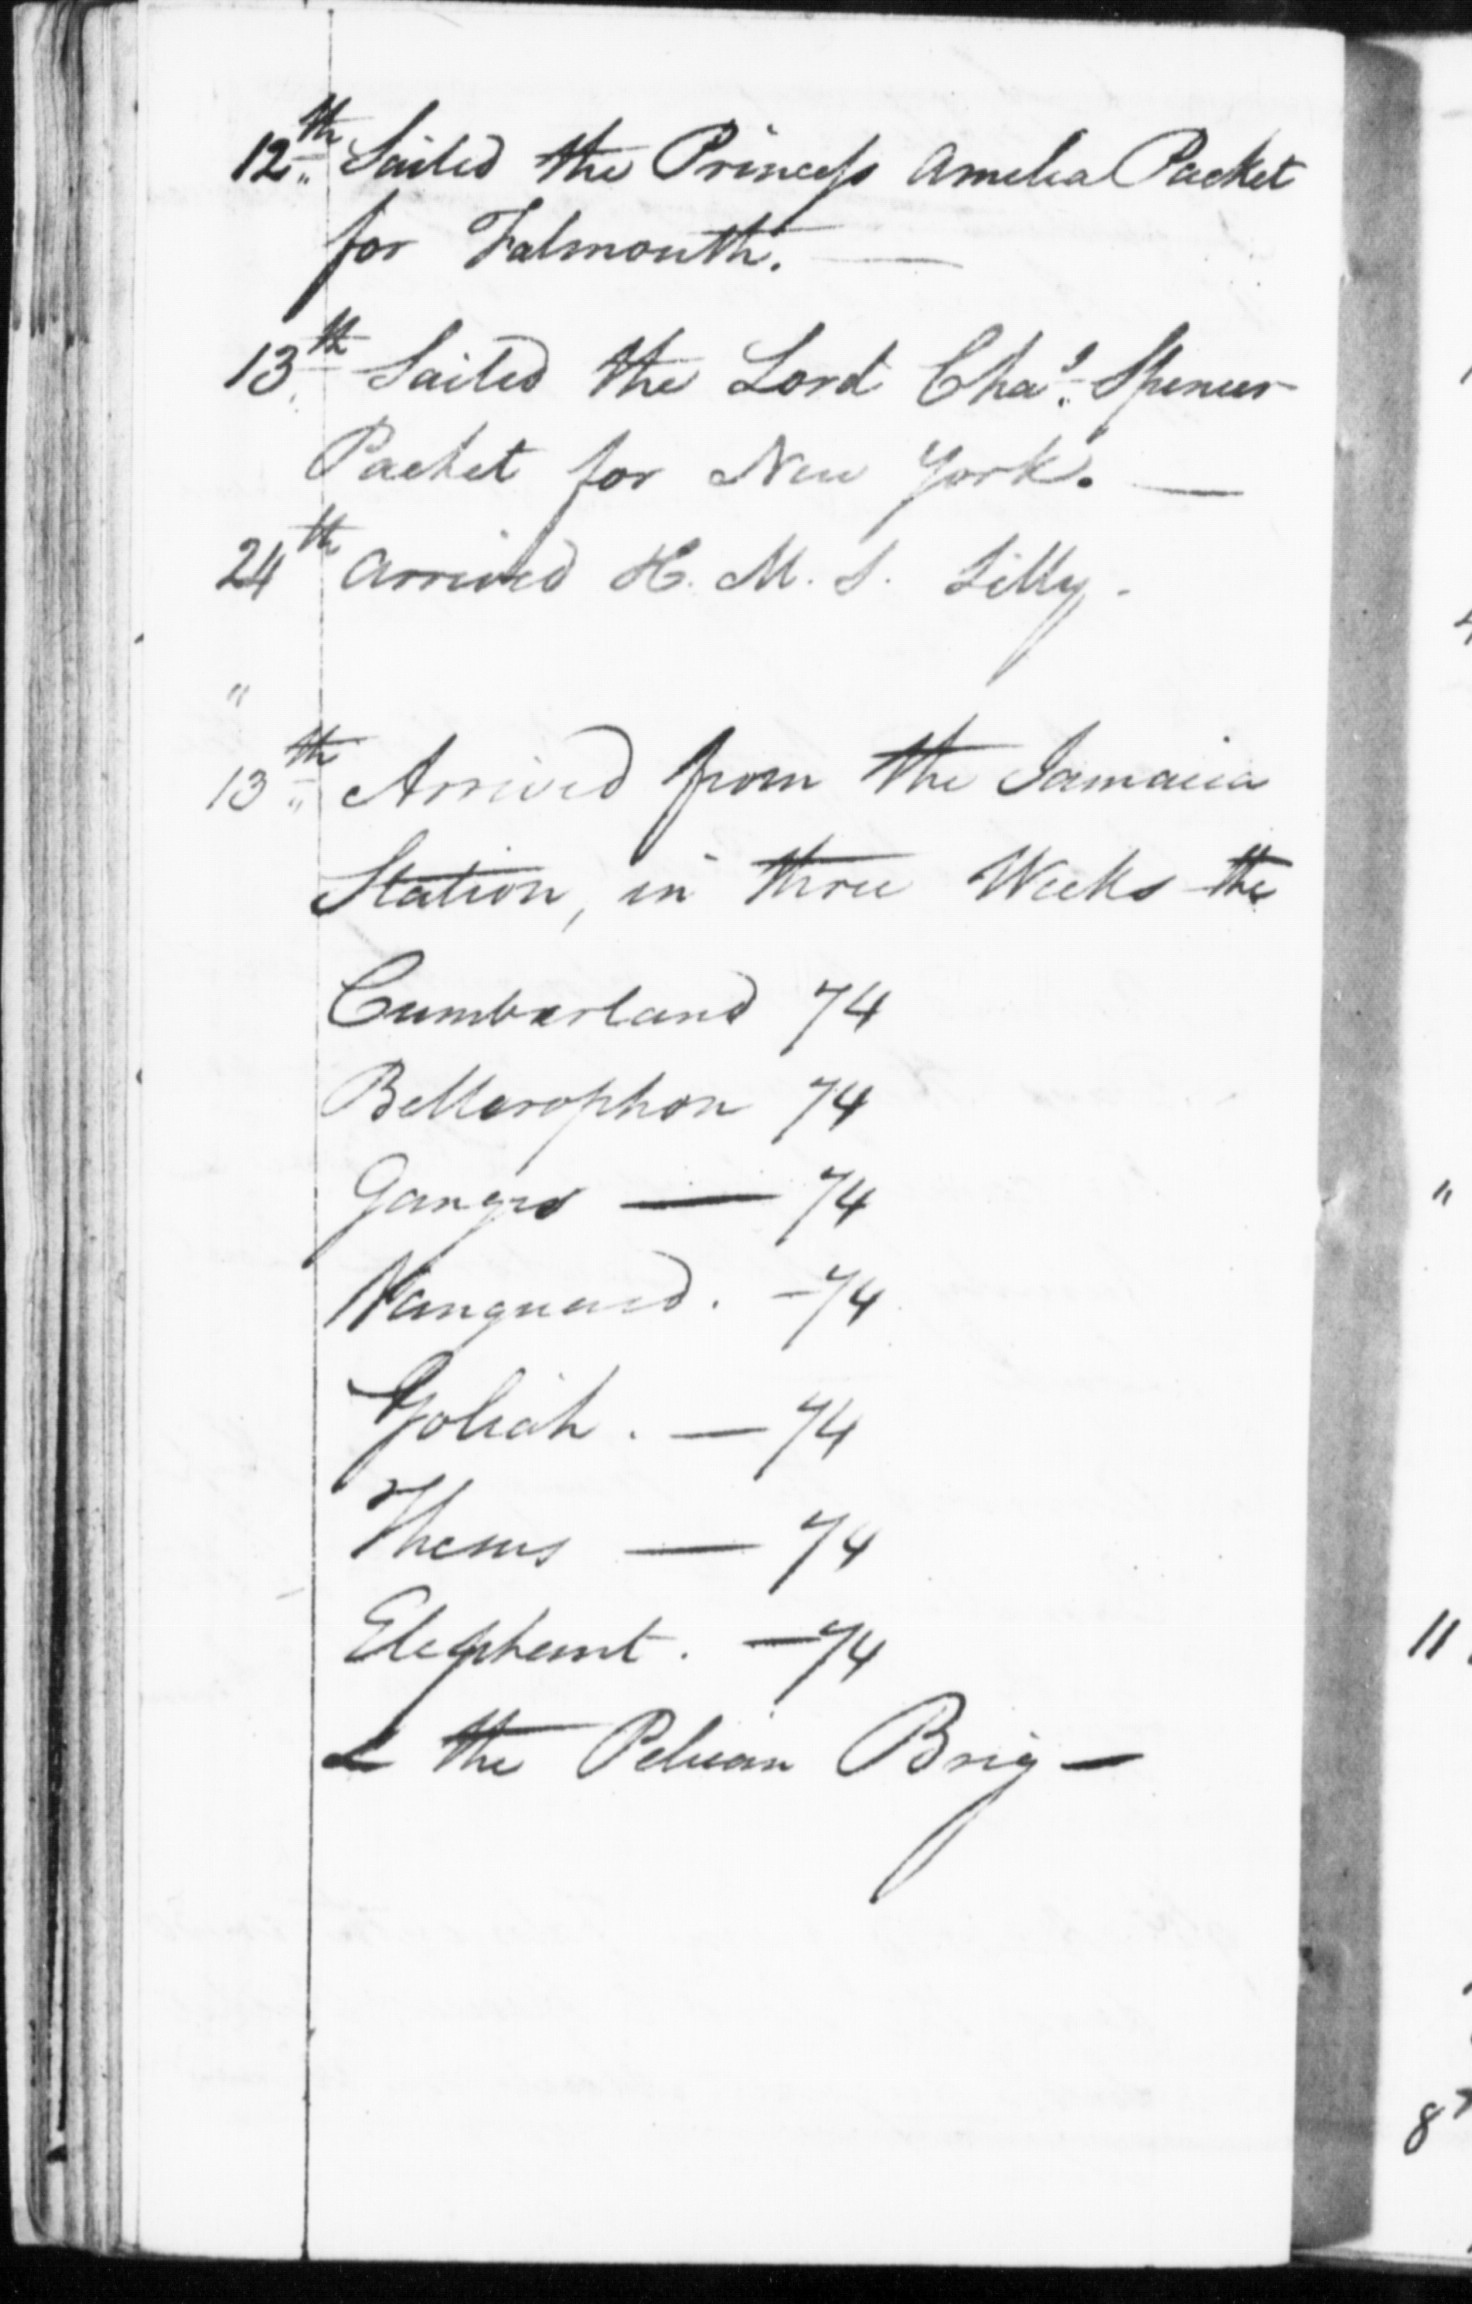 12th Sailed the Princess Amelia Packet
for Falmouth. —
13th Sailed the Lord Chas. Spencer
Packet for New York. —
24th arrived H. M. S. Lilly -
"
13th Arrived from the Jamaica
Station, in three Weeks the
Cumberland 74
Bellerophon 74
Ganges — 74
Vanguard. — 74
Goliah. — 74
Theseus — 74
Elephant. — 74
& the Pelican Brig —
"
11
8